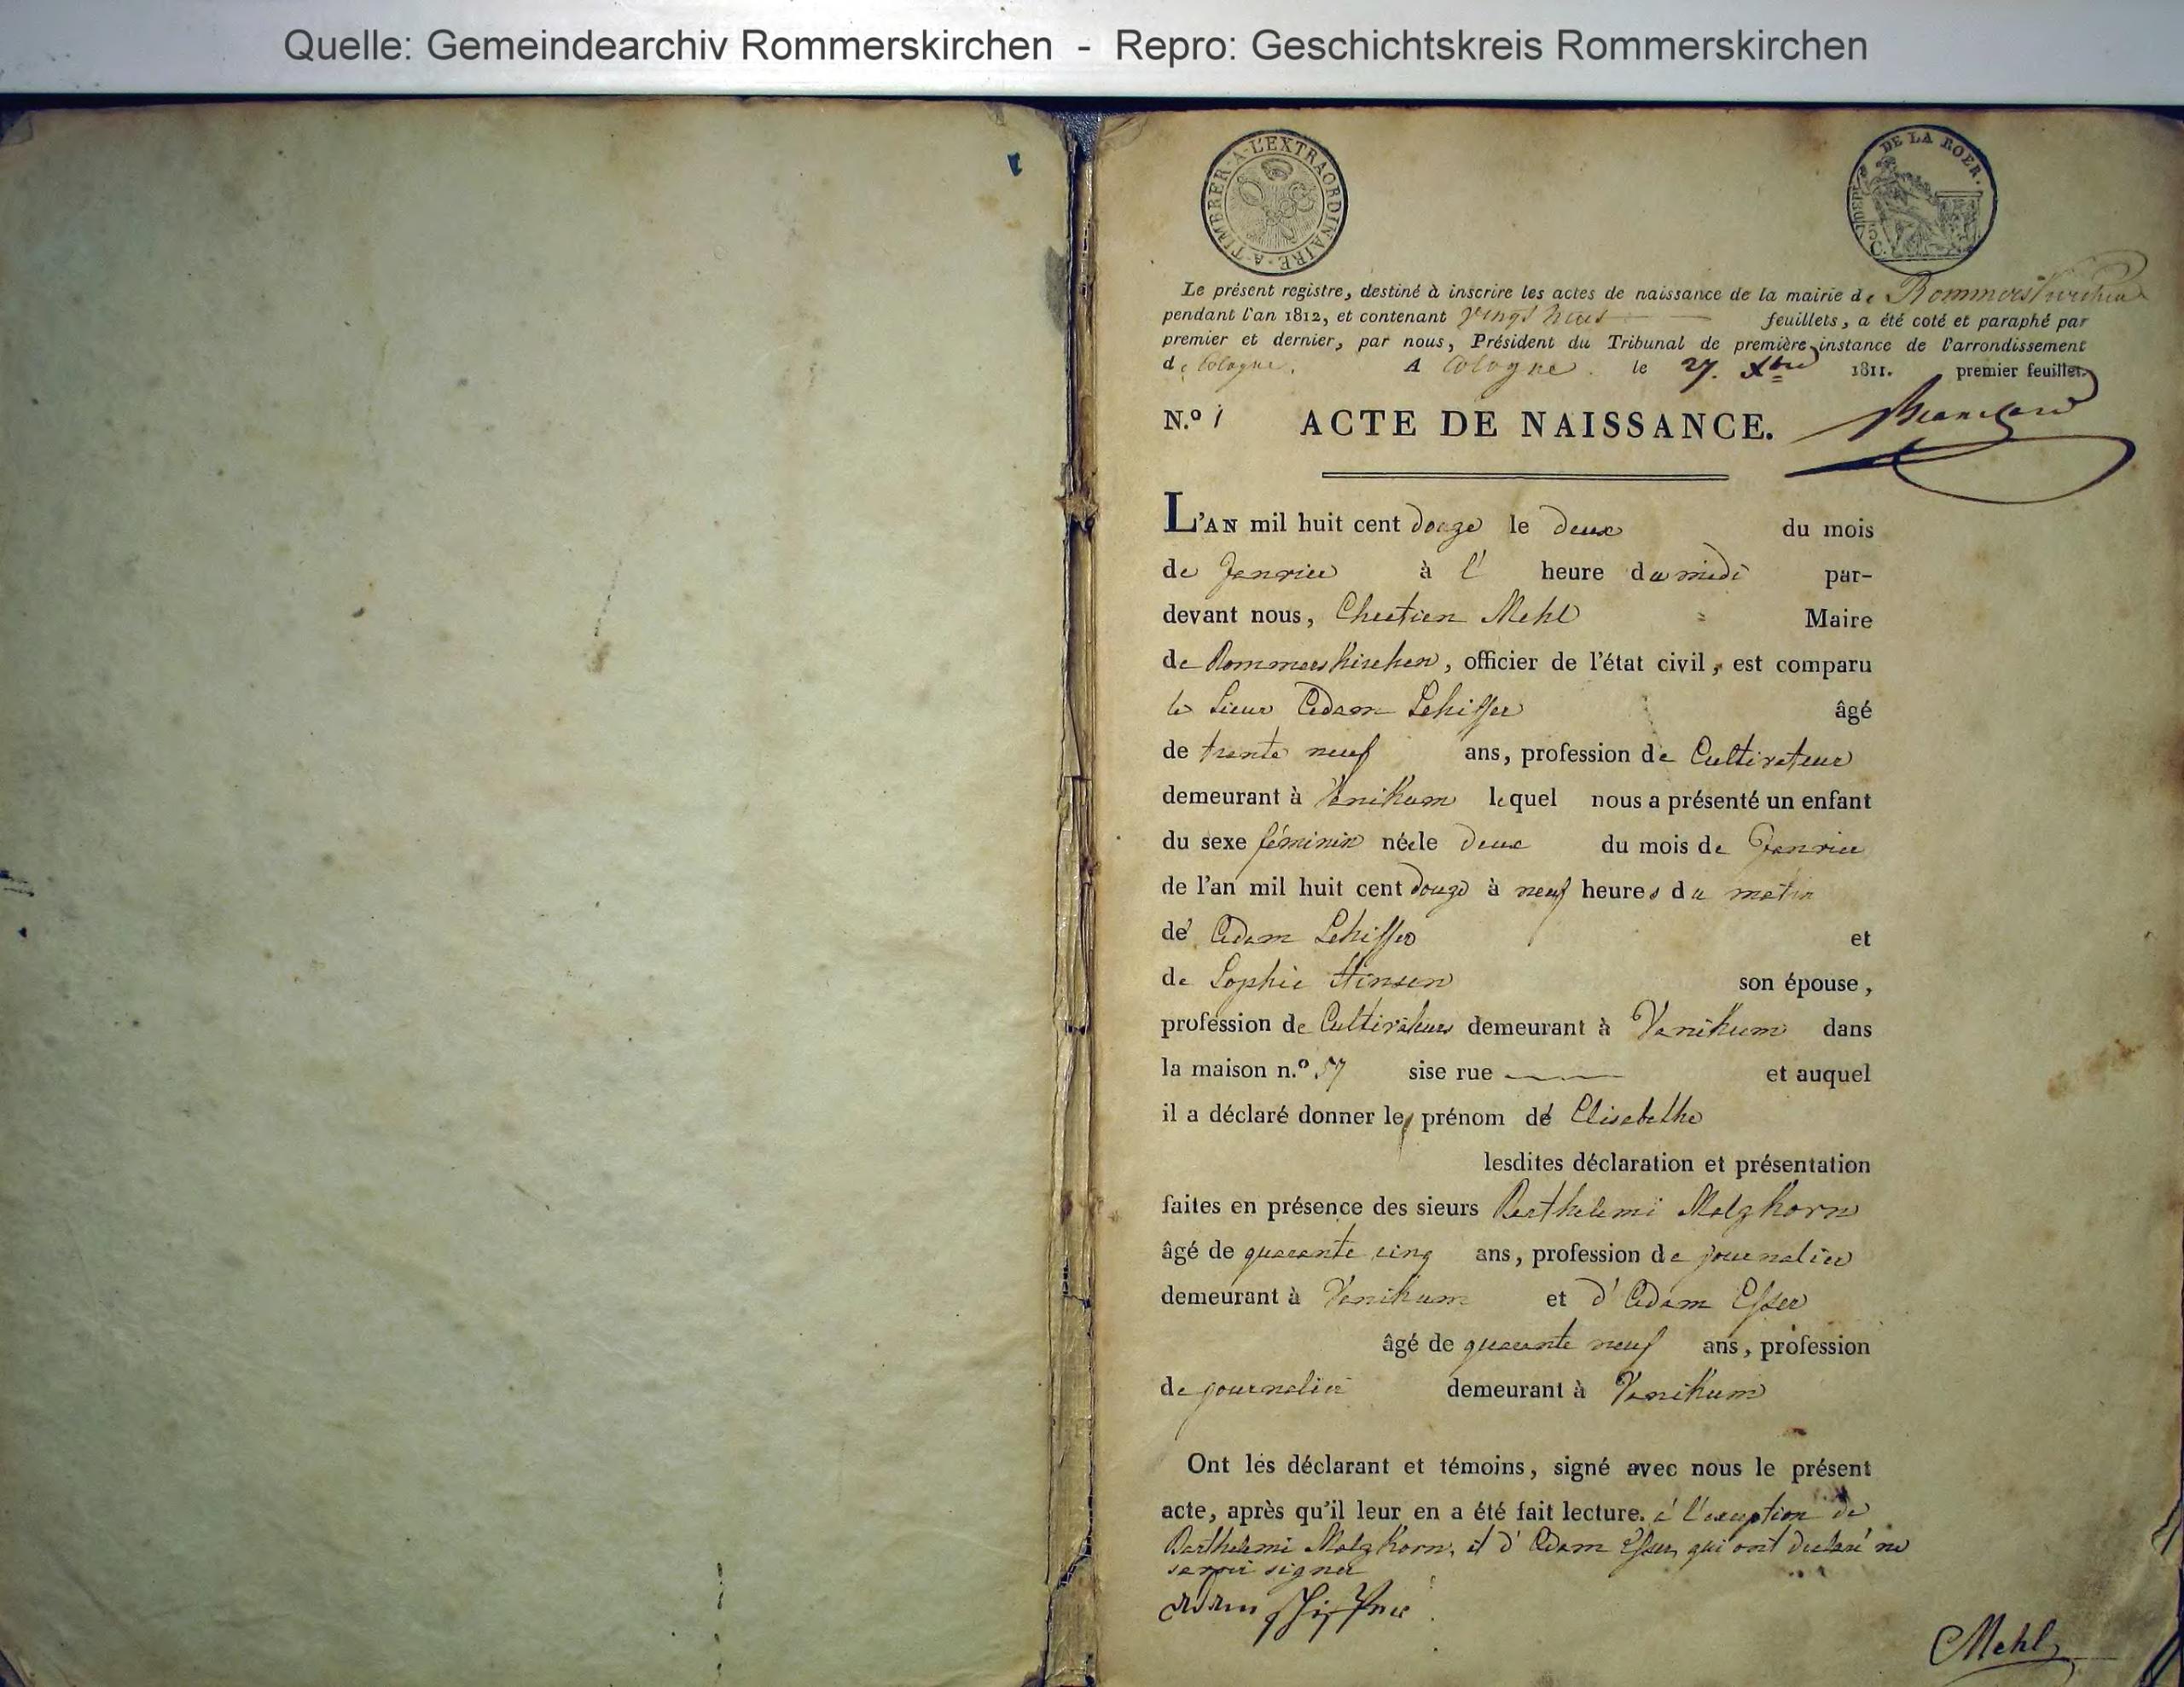 Quelle: Gemeindearchiv Rommerskirchen - Repro: Geschichtskreis Rommerskirchen
A TIMBRER A L'EXTRAORDINAIRE
DE LA ROER.
Le présent registre, destiné à inscrire les actes de naissance de la mairie de Rommerskirchen
pendant l'an 1812, et contenant feuillets, a été coté et paraphé par
premier et dernier, par nous, Président du Tribunal de première instance de l'arrondissement
de Cologne. A Cologne. le 27. Xbre 1811. premier feuillet.
N.º 1 ACTE DE NAISSANCE.
L'AN mil huit cent douze le deux du mois
de Janvier à l' heure du midi par-
devant nous, Chretien Mehl Maire
de Rommerskirchen, officier de l'état civil, est comparu
le Sieur Adam Schiffer âgé
de trente neuf ans, profession de Cultivateur
demeurant à Vanikum lequel nous a présenté un enfant
du sexe féminin née le deux du mois de Janvier
de l'an mil huit cent douze à neuf heures du matin
de Adam Schiffer et
de Sophie son épouse,
profession de Cultivateurs demeurant à Vanikum dans
la maison n.º 57 sise rue et auquel
il a déclaré donner le prénom de Elisabethe
lesdites déclaration et présentation
faites en présence des sieurs Barthelemi Malzkorn
âgé de quarante cinq ans, profession de journalier
demeurant à Vanikum et d'Adam Esser
âgé de quarante neuf ans, profession
de journalier demeurant à Vanikum
Ont les déclarant et témoins, signé avec nous le présent
acte, après qu'il leur en a été fait lecture. à l'exception de
Barthelemi Malzkorn, et d'Adam Esser, qui ont declaré ne
savoir signer
Mehl